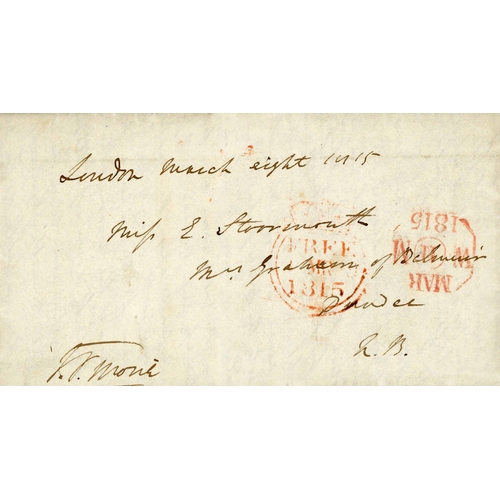 London March eight 1815
Miss E. Stormonth
Mrs Graham of Balmuir
Dundee
N.B.
FREE
1815
MAR
1815